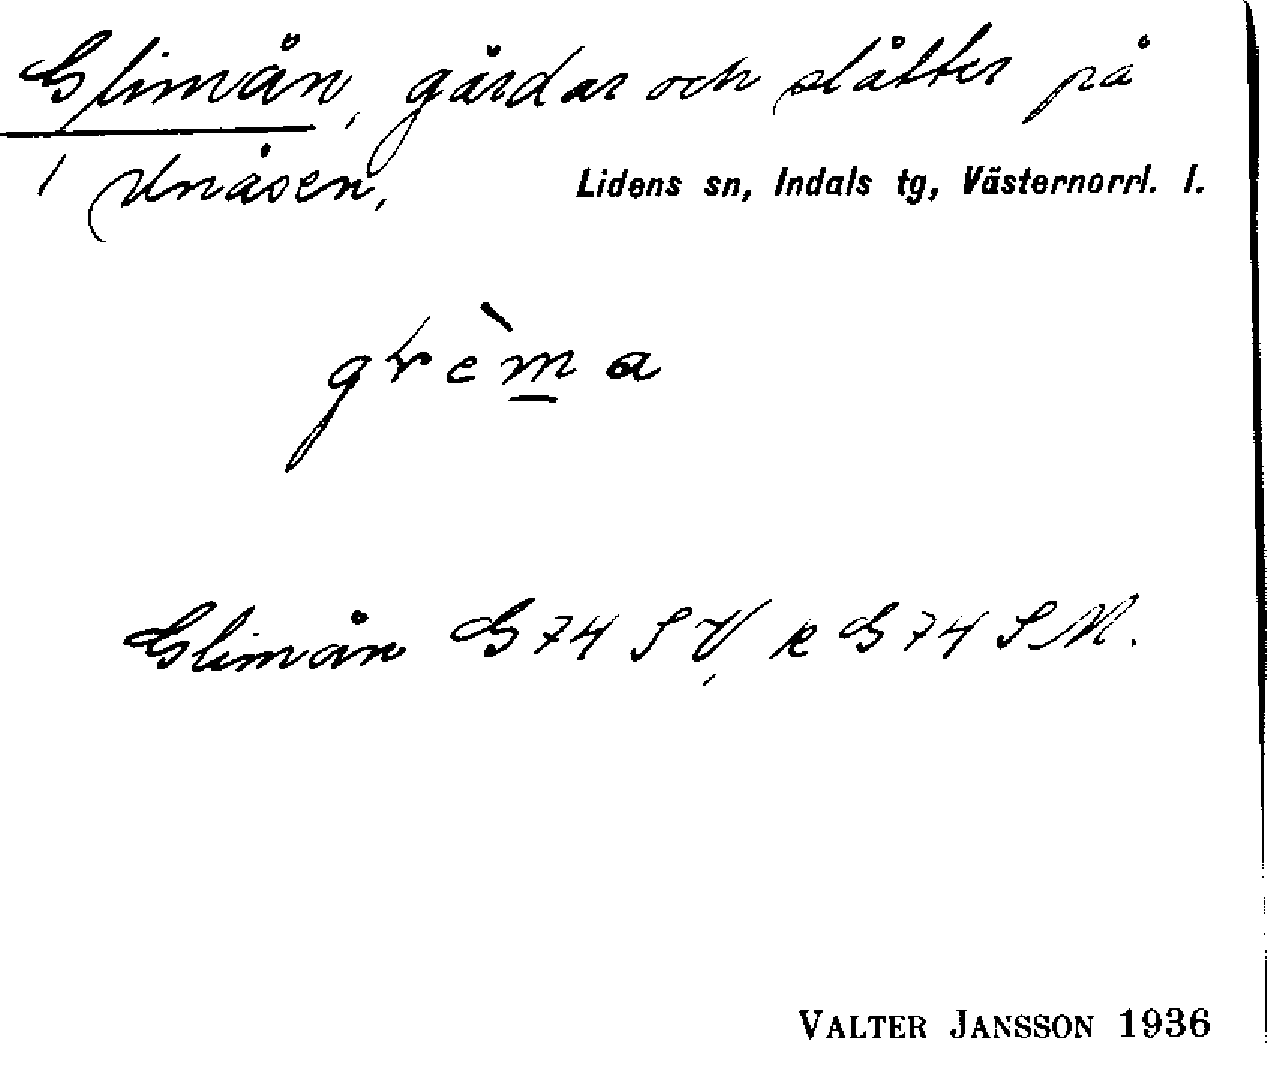 Glimån, gårdar och slåtter på
1 Unåsen, Lidens sn, Indals tg, Västernorrl. l.
grèm̲a
Glimån G 74 SV, k G 74 SM.
VALTER JANSSON 1936